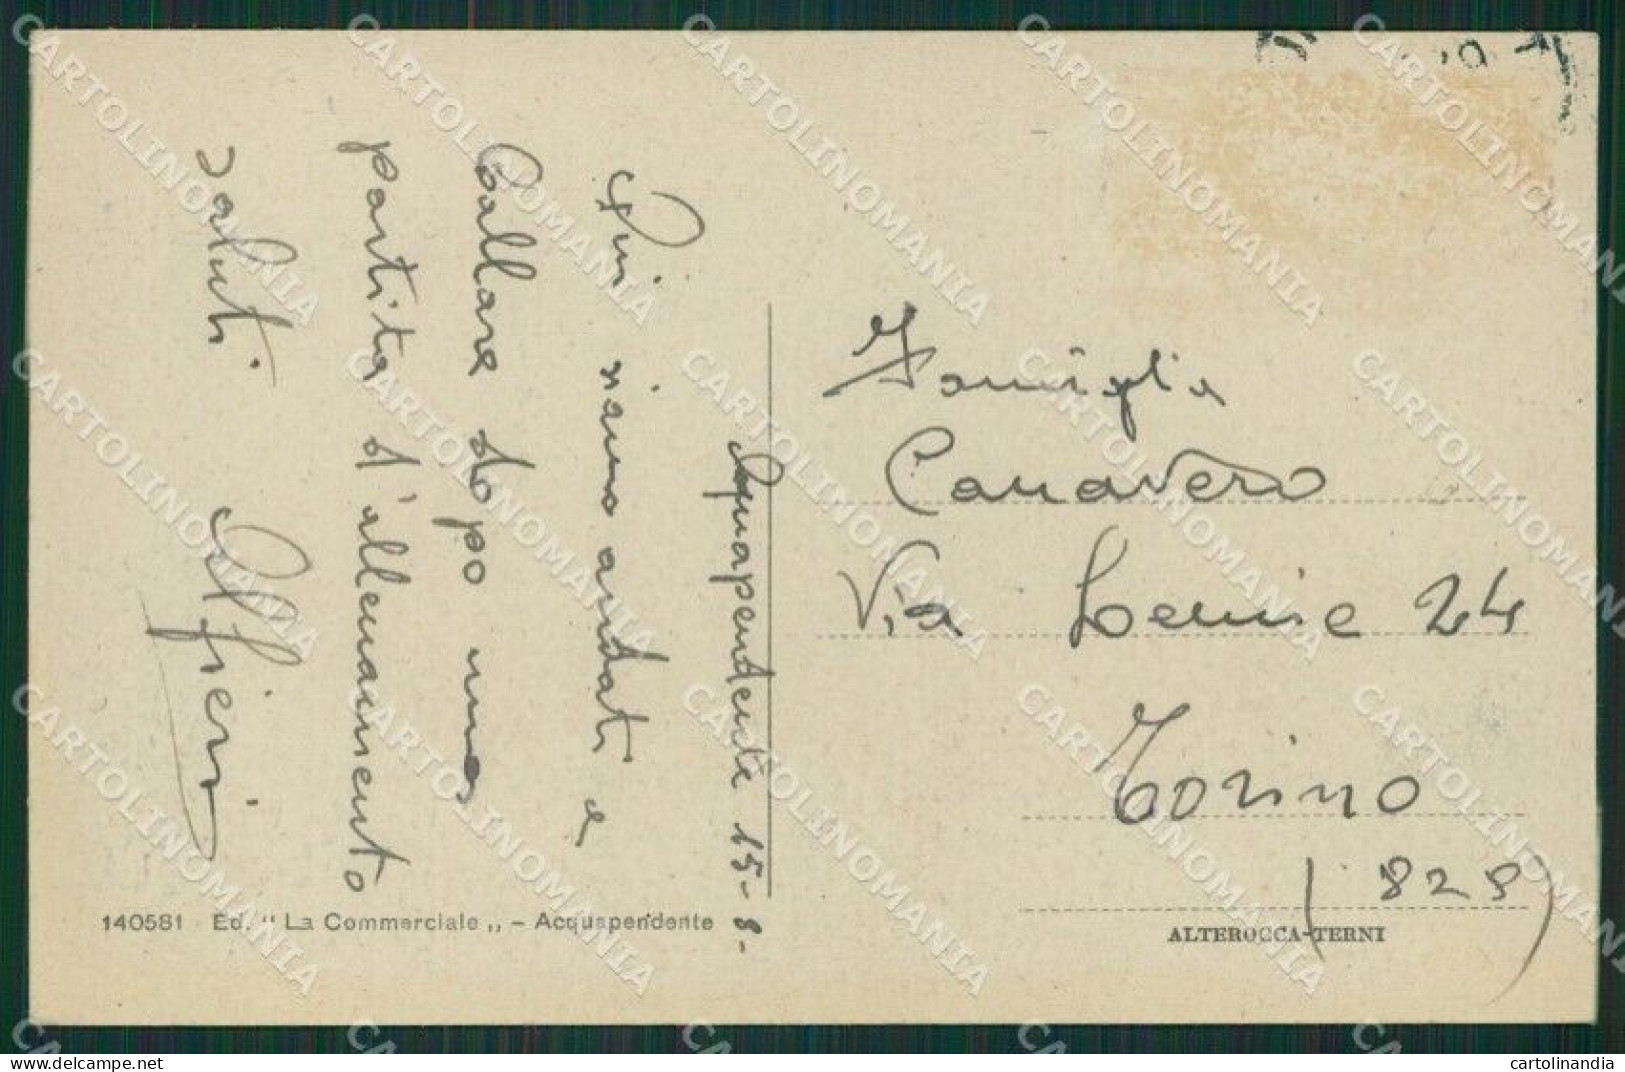 Acquapendente 15-8-
Qui siamo andati a
ballare dopo una
partita d'allenamento
saluti Alfieri
Famiglia
Canavero
Via Lemie 24
Torino
(829)
140581 - Ed. “ La Commerciale „ - Acquapendente
ALTEROCCA-TERNI
CARTOLINOMANIA
Visit our Website
cartolinandia